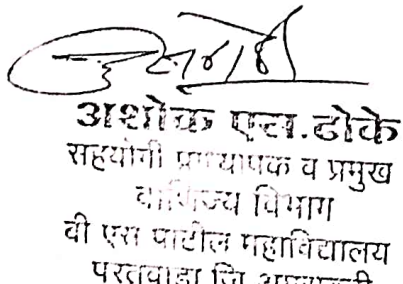 अशोक एल.ढोके
सहयोगी प्राध्यापक व प्रमुख
वाणिज्य विभाग
वी एस पाटील महाविद्यालय
परतवाडा जि अमरावती